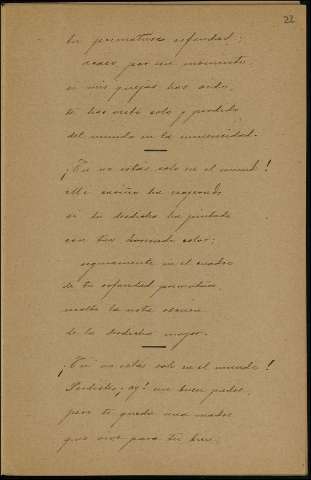 22
tu prematura orfandad;
acaso por un momento,
si mis quejas has oido,
te has visto solo y perdido
del mundo en la inmensidad.
¡Tú no estás solo en el mundo!
Mi cariño ha respondido
si tu desdicha ha pintado
con tan color;
seguramente en el cuadro
de tu orfandad prematura,
la nota oscura
de la desdicha mayor.
¡Tú no estás solo en el mundo!
Perdiste, ¡ay! un buen padre,
pero te queda una madre
que vive para tu bien.